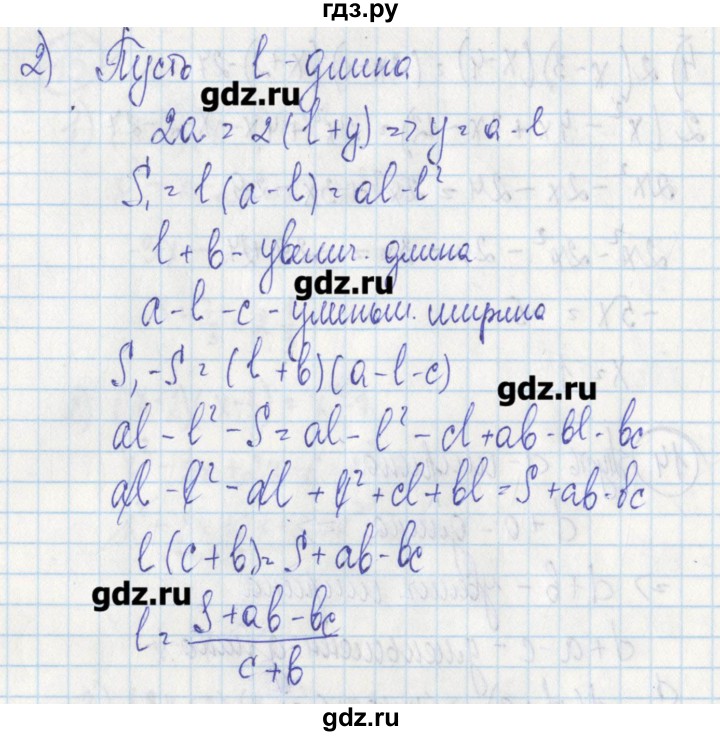 гдз.ру
2) Пусть l - длина
gdz.ru
2a = 2(l+y) => y = a - l
S₁ = l(a-l) = al - l²
l + b - увелич. длина
gdz.ru
a - l - c - уменьш. ширина
S₁ - S = (l+b)(a-l-c)
gdz.ru
al - l² - S = al - l² - cl + ab - bl - bc
al - l² - al + l² + cl + bl = S + ab - bc
l(c+b) = S + ab - bc
gdz.ru
l = (S + ab - bc)/(c + b)
gdz.ru